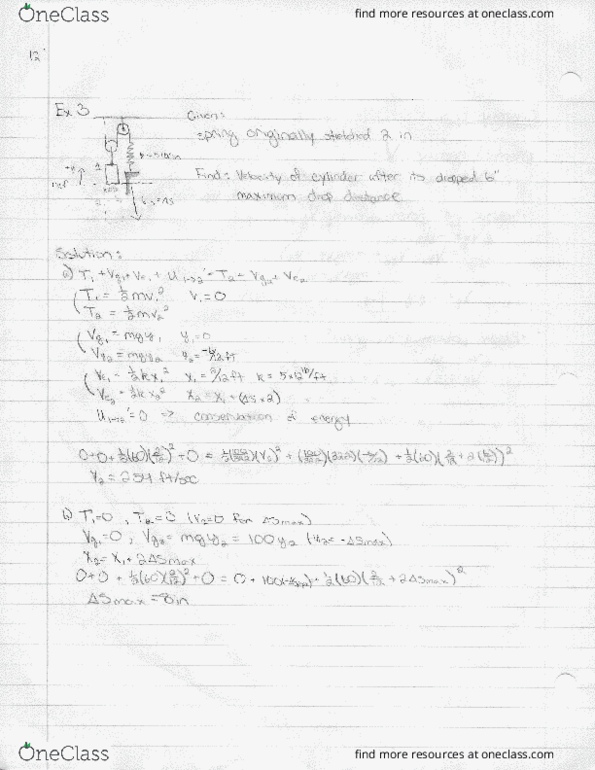 OneClass
find more resources at oneclass.com
12
Ex. 3
Given:
spring originally stretched 2 in
Find: Velocity of cylinder after its dropped 6"
maximum drop distance
ref
Solution:
a) T₁ + Vg₁ + Ve₁ + U₁→₂' = T₂ + Vg₂ + Ve₂
T₁ = ½mv₁² V₁=0
T₂ = ½mv₂²
Vg₁ = mgy₁ y₁=0
Vg₂ = mgy₂ y₂ = -6/12 ft
Ve₁ = ½kx₁² x₁ = 2/12 ft k = 5×12 lb/ft
Ve₂ = ½kx₂² x₂ = x₁ + (ΔS×2)
U₁→₂' = 0 => conservation of energy
0+0+½(60)(2/12)²+0 = ½(100/32.2)(V₂)² + (100/32.2)(32.2)(-6/12) + ½(60)(2/12 + 2(6/12))²
V₂ = 2.54 ft/sec
b) T₁=0, T₂=0 (V₂=0 for ΔSmax)
Vg₁=0, Vg₂ = mgy₂ = 100y₂ (y₂ = -ΔSmax)
x₂ = x₁ + 2ΔSmax
0+0+½(60)(2/12)²+0 = 0 + 100(-ΔSmax) + ½(60)(2/12 + 2ΔSmax)²
ΔSmax = 8in
OneClass
find more resources at oneclass.com